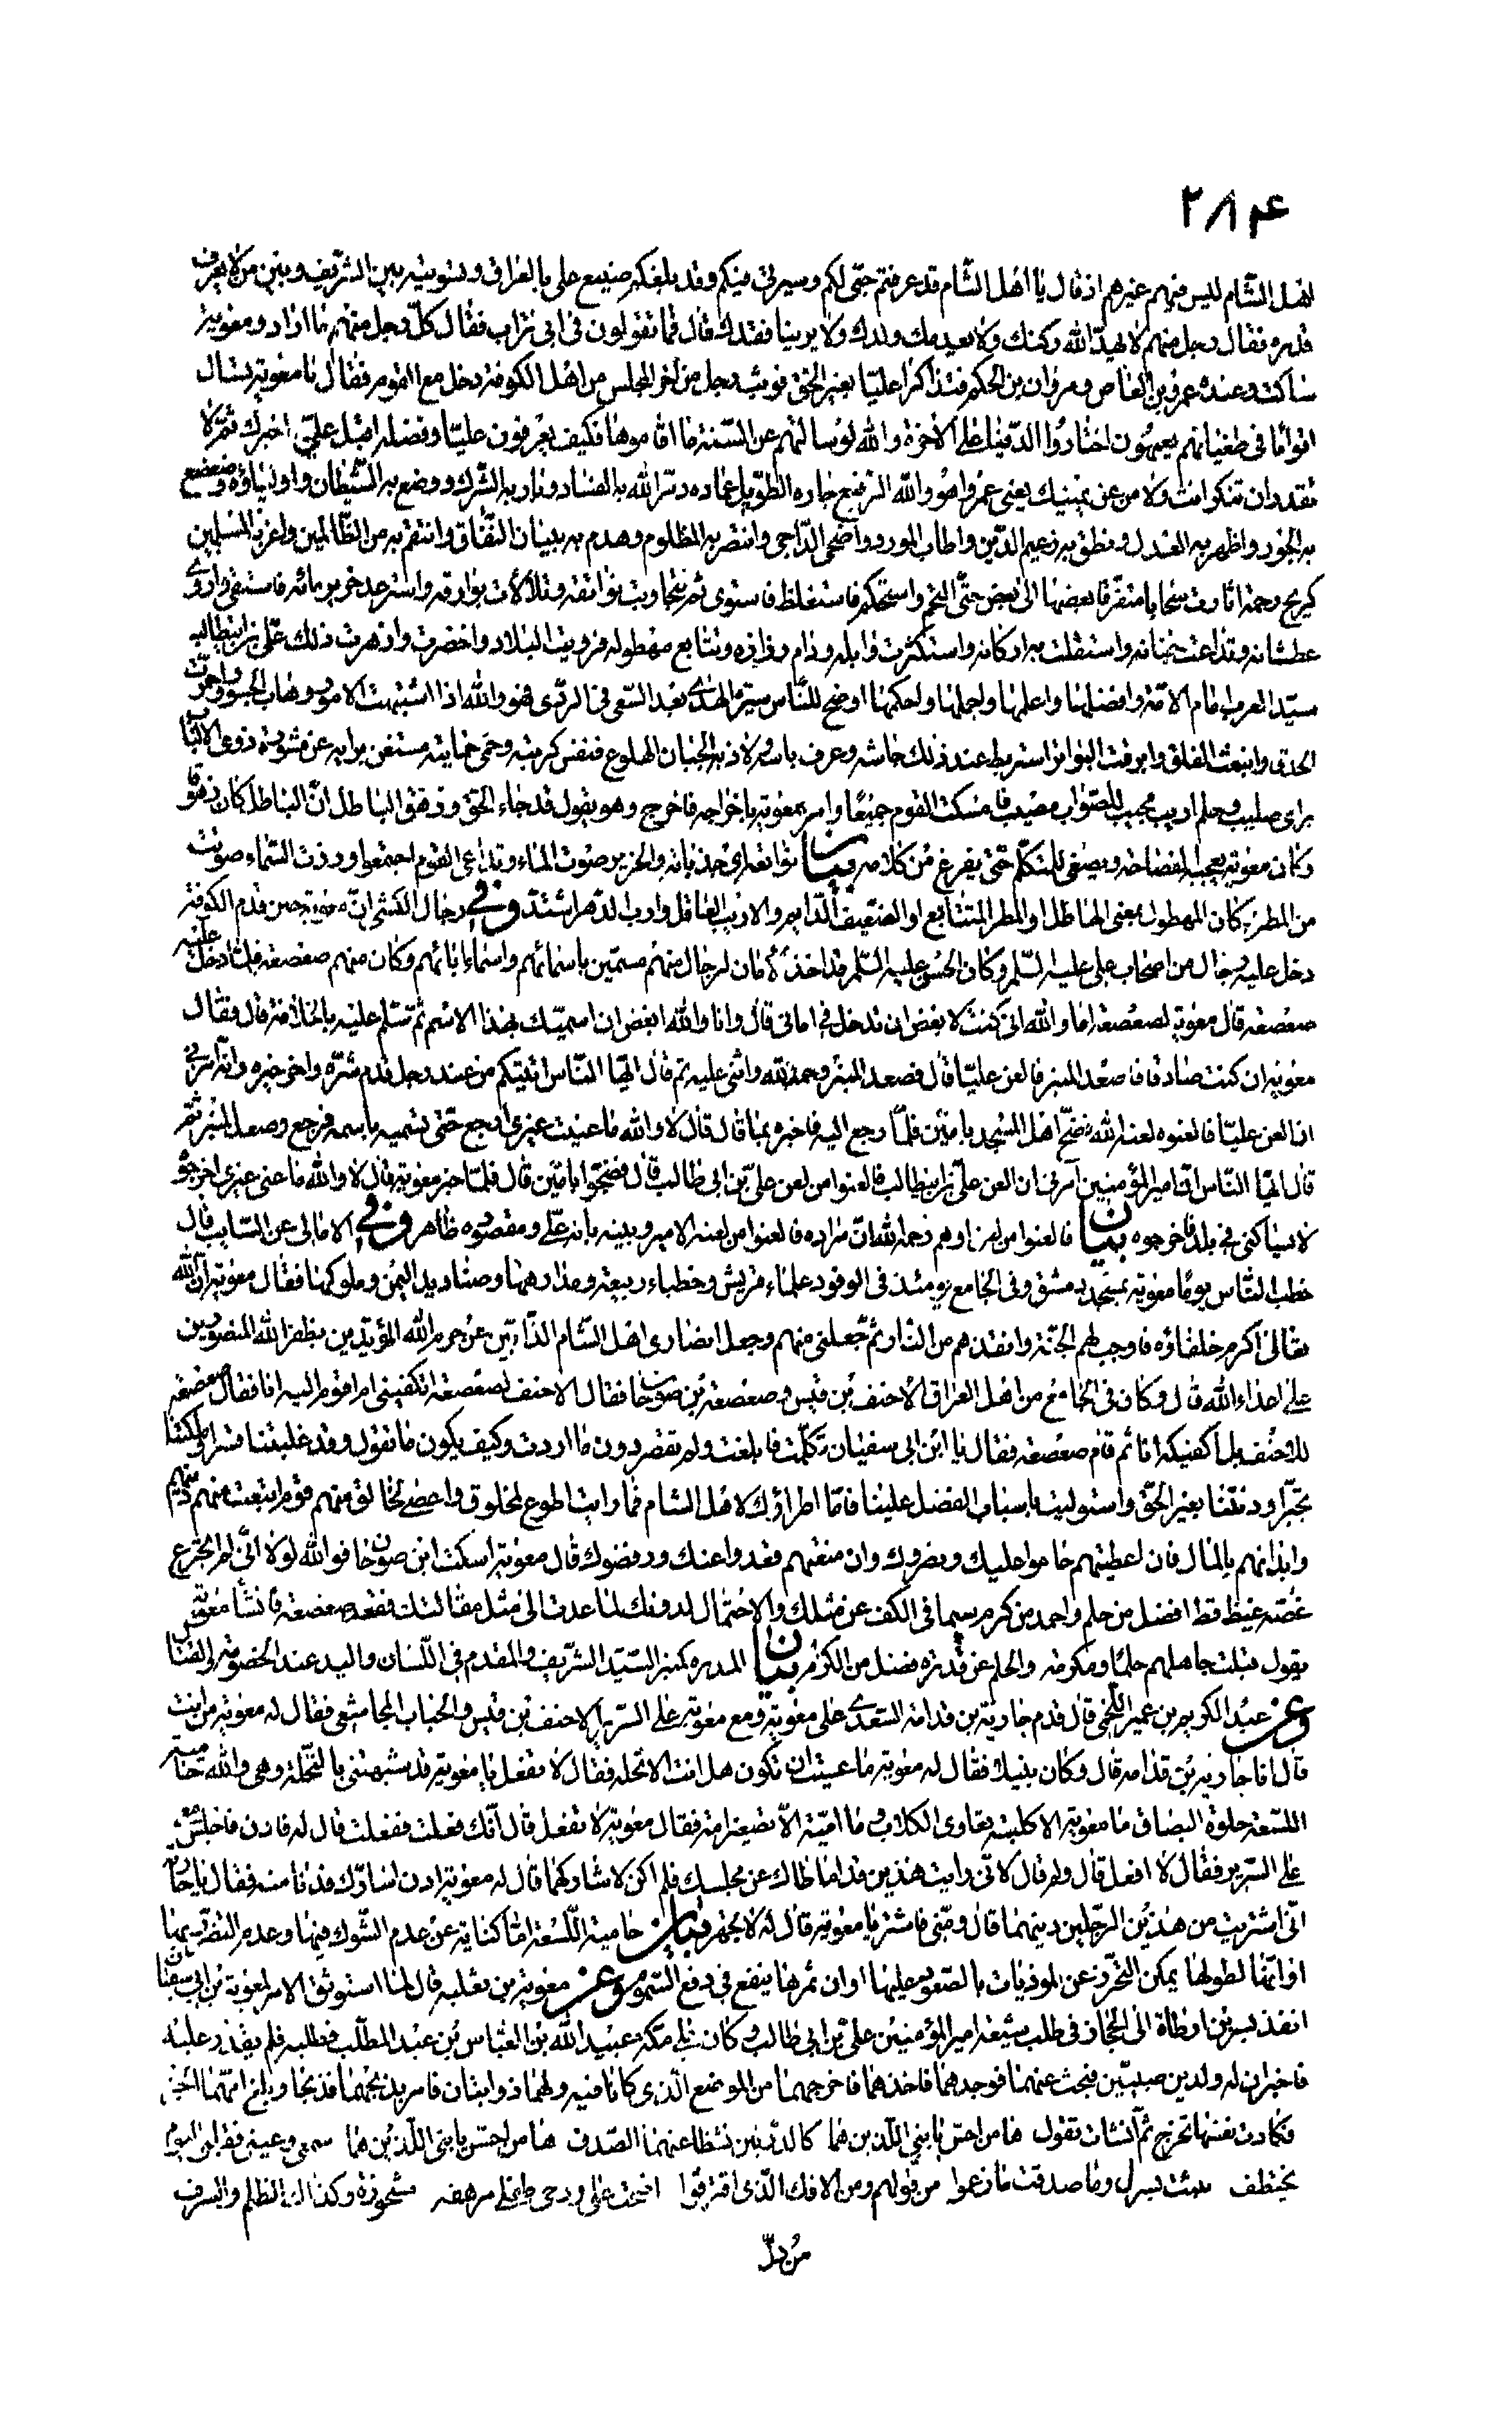 ٢٨٤
اهل الشام ليس فيهم غيرهم اذ قال يا اهل الشام قد عرفتم حبى لكم وسيرتى فيكم وقد بلغكم صنيع على بالعراق وتسويته بين الشريف وبين من لا يعرف
قدره فقال رجل منهم لا يهد الله ركنك ولا يعدمك ولدك ولا يرينا فقدك قال فما تقولون فى ابى تراب فقال كل رجل منهم ما اراد ومعوية
ساكت وعنده عمرو بن العاص ومروان بن الحكم فتذاكرا عليا بغير الحق فوثب رجل من اخر المجلس من اهل الكوفة دخل مع القوم فقال يا معوية تسال
اقواما فى طغيانهم يعمهون اختاروا الدنيا على الاخرة والله لو سالتهم عن السنة ما اقاموها فكيف يعرفون عليا وفضله اقبل على اخبرك ثم لا
تقدر ان تنكر انت ولا من عن يمينك يعنى عمروا هو والله الرفيع جاره الطويل عماده دمر الله به الفساد وبار به الشرك ووضع به الشيطان واولياؤه وضعضع
به الجور واظهر به العدل ونطق به زعيم الدين واطاب المورد واضحى الداجى وانتصر به المظلوم وهدم به بنيان النفاق وانتقم به من الظالمين واعز به المسلمين
كريح رحمة اثارت سحابا متفرقا بعضها الى بعض حتى التحم واستحكم فاستغلظ فاستوى ثم تجاوبت نواتقه وتلألأت بوارقه واسترعد خرير مائه فاسقى واروى
عطشانه وتداعت جنانه واستقلت به اركانه واستكثرت وابله ودام رذاذه وتتابع مهطوله فرويت البلاد واخضرت وازهرت ذلك على بن ابيطالب
سيد العرب امام الامة وافضلها واعلمها واجملها واحكمها اوضح للناس سيرة الهدى بعد السعى فى الردى فهو والله اذا اشتبهت الامور وهاب الجسور واحمرت
الحدق وانبعث القلق وابرقت البواتر استربط عند ذلك جاشه وعرف باسه ولاذ به الجبان الهلوع فنفس كربته وحمى حمايته مستغن برايه عن مشورة ذوى الالباب
براى صليب وحلم اريب مجيب للصواب مصيب فامسكت القوم جميعا وامر معوية باخراجه فاخرج وهو يقول قد جاء الحق وزهق الباطل ان الباطل كان زهوقا
وكان معوية يعجبه الفصاحة ويصغى للمتكلم حتى يفرغ من كلامه بيان نواتقه اى جذباته والخرير صوت الماء وتداعى القوم اجتمعوا ورزت السماء صوتت
من المطر وكان المهطول بمعنى الهاطل او المطر المتتابع او الضعيف الدايم والاريب العاقل وارب الدهر اشتد وفى رجال الكشى ان معوية حين قدم الكوفة
دخل عليه رجال من اصحاب على عليه السلم وكان الحسن عليه السلم قد اخذ الامان لرجال منهم مسمين باسمائهم واسماء ابائهم وكان منهم صعصعة فلما دخل عليه
صعصعة قال معوية لصعصعة اما والله انى كنت لابغض ان تدخل فى امانى قال وانا والله ابغض ان اسميك بهذا الاسم ثم سلم عليه بالخلافة قال فقال
معوية ان كنت صادقا فاصعد المنبر فالعن عليا قال فصعد المنبر وحمد الله واثنى عليه ثم قال ايها الناس اتيتكم من عند رجل قدم شره واخر خيره وانه امرنى
ان العن عليا فالعنوه لعنه الله فضج اهل المسجد بامين فلما رجع اليه فاخبره بما قال قال لا والله ما عنيت غيرى ارجع حتى تسميه باسمه فرجع وصعد المنبر ثم
قال ايها الناس ان امير المؤمنين امرنى ان العن على بن ابيطالب فالعنوا من لعن على بن ابى طالب قال فضجوا بامين قال فلما اخبر معوية قال لا والله ما عنى غيرى اخرجوه
لا يساكننى فى بلد فاخرجوه بيان فالعنوا من لعن اوهم رحمه الله ان مراده فالعنوا من لعنه الامير وبينه بانه على ومقصوده ظاهر وفى الامالى عن السايب قال
خطب الناس يوما معوية بمسجد دمشق وفى الجامع يومئذ من الوفود علماء قريش وخطباء ربيعة ومدارهها وصناديد اليمن وملوكها فقال معوية ان الله
تعالى اكرم خلفاؤه فاوجب لهم الجنة وانقذهم من النار ثم جعلنى منهم وجعل انصارى اهل الشام الذابين عن حرم الله المؤيدين بظفر الله المنصورين
على اعداء الله قال وكان فى الجامع من اهل العراق الاحنف بن قيس وصعصعة بن صوحان فقال الاحنف لصعصعة اتكفينى ام اقوم اليه انا فقال صعصعة
للاحنف بل اكفيكه انا ثم قام صعصعة فقال يا ابن ابى سفيان تكلمت فابلغت ولم تقصر دون ما اردت وكيف يكون ما تقول وقد غلبتنا قسرا وملكتنا
تجبرا ودنتنا بغير الحق واستوليت باسباب الفضل علينا فاما اطراؤك لاهل الشام فما رايت اطوع لمخلوق واعصى لخالق منهم قوم ابتعت منهم دينهم
وابدانهم بالمال فان اعطيتهم حاموا عليك ونصروك وان منعتهم قعدوا عنك ورفضوك قال معوية اسكت ابن صوحان فوالله لولا انى لم اتجرع
غصة غيظ قط افضل من حلم واحمد من كرم سيما فى الكف عن مثلك والاحتمال لدونك لما عدت الى مثل مقالتك فقعد صعصعة فانشا معوية
يقول قبلت جاهلهم حلما ومكرمة والحلم عن قدرة فضل من الكرم بيان المدره كمنبر السيد الشريف والمقدم فى اللسان واليد عند الخصومة والقتال
وعن عبد الكريم بن عمير اللخمى قال قدم جارية بن قدامة السعدى على معوية ومع معوية على السرير الاحنف بن قيس والحباب المجاشعى فقال له معوية من انت
قال انا جارية بن قدامة قال وكان نبيلا فقال له معوية ما عسيت ان تكون هل انت الا نحلة فقال لا تفعل يا معوية قد شبهتنى بالنحلة وهى والله حامية
اللسعة حلوة البصاق ما معوية الا كلبة تعاوى الكلاب وما امية الا تصغير امة فقال معوية لا تفعل قال انك فعلت ففعلت قال له فادن فاجلس معى
على السرير فقال لا افعل قال ولم قال لانى رايت هذين قد اماطاك عن مجلسك فلم اكن لاشاركهما قال له معوية ادن اسارك فدنا منه فقال يا جارية
انى اشتريت من هذين الرجلين دينهما قال ومنى فاشتر يا معوية قال له لا تجهر بيان حامية اللسعة اما كناية عن عدم الشوك فيها وعدم التضرر بها
او انها لطولها يمكن التحرز عن الموذيات بالصعود عليها او ان ثمرها ينفع فى دفع السموم وعن معوية بن ثعلبه قال لما استوثق الامر لمعوية بن ابى سفيان
انفذ بسر بن ارطاة الى الحجاز فى طلب شيعة امير المؤمنين على بن ابى طالب وكان على مكة عبيد الله بن العباس بن عبد المطلب فطلبه فلم يقدر عليه
فاخبر ان له ولدين صبيين فبحث عنهما فوجدهما فاخذهما فاخرجهما من الموضع الذى كانا فيه ولهما ذوابتان فامر بذبحهما فذبحا وبلغ امهما الخبر
فكادت نفسها تخرج ثم انشات تقول ها من احس بابنى اللذين هما كالدرتين تشظا عنهما الصدف ها من احس بابنى اللذين هما سمعى وعينى فقلبى اليوم
يختطف نبئت بسرا وما صدقت ما زعموا من قولهم ومن الافك الذى اقترفوا اضحت على ودجى طفلى مرهفة مشحوذة وكذاك الظلم والسرف
من دل